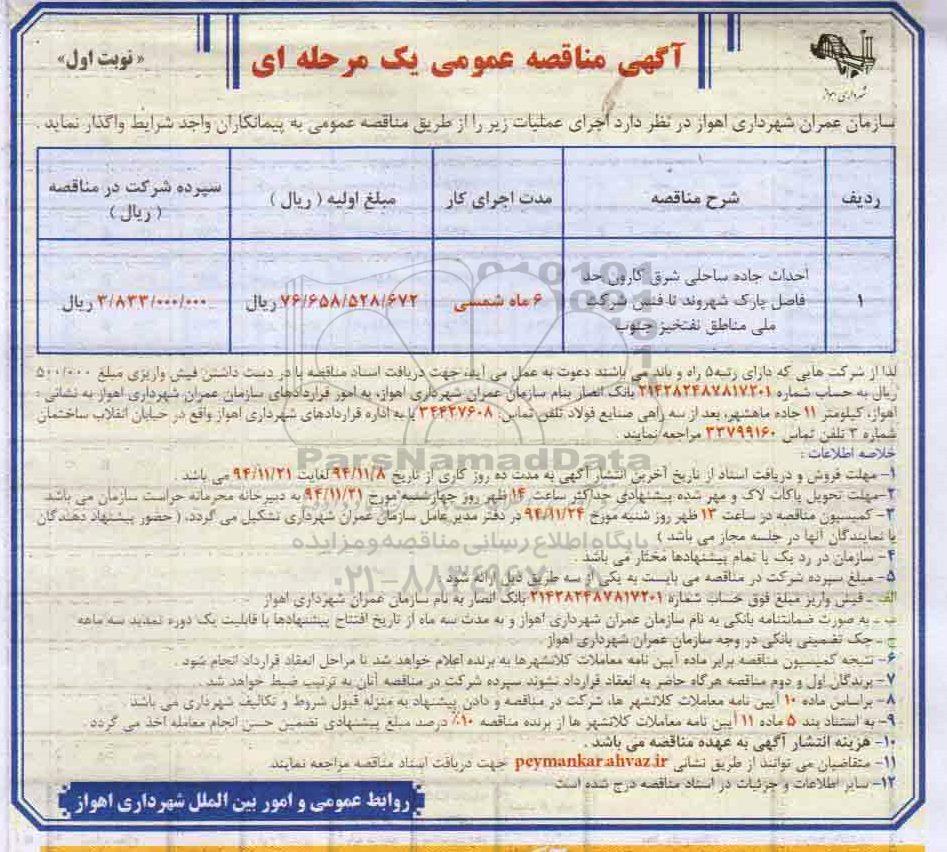 آگهی مناقصه عمومی یک مرحله ای
« نوبت اول»
شهرداری اهواز
سازمان عمران شهرداری اهواز در نظر دارد اجرای عملیات زیر را از طریق مناقصه عمومی به پیمانکاران واجد شرایط واگذار نماید .
ردیف
شرح مناقصه
مدت اجرای کار
مبلغ اولیه ( ریال )
سپرده شرکت در مناقصه
( ریال )
۱
احداث جاده ساحلی شرق کارون حد
فاصل پارک شهروند تا فنس شرکت
ملی مناطق نفتخیز جنوب
۶ ماه شمسی
۷۶/۶۵۸/۵۲۸/۶۷۲ ریال
۳/۸۳۳/۰۰۰/۰۰۰ ریال
لذا از شرکت هایی که دارای رتبه۵ راه و باند می باشند دعوت به عمل می آید، جهت دریافت اسناد مناقصه با در دست داشتن فیش واریزی مبلغ ۵۰۰/۰۰۰
ریال به حساب شماره ۲۱۴۲۸۲۴۸۷۸۱۷۲۰۱ بانک انصار بنام سازمان عمران شهرداری اهواز، به امور قراردادهای سازمان عمران شهرداری اهواز به نشانی :
اهواز، کیلومتر ۱۱ جاده ماهشهر، بعد از سه راهی صنایع فولاد تلفن تماس: ۳۴۴۲۷۶۰۸ یا به اداره قراردادهای شهرداری اهواز واقع در خیابان انقلاب ساختمان
شماره ۳ تلفن تماس ۳۳۷۹۹۱۶۰ مراجعه نمایند .
خلاصه اطلاعات :
۱- مهلت فروش و دریافت اسناد از تاریخ آخرین انتشار آگهی به مدت ده روز کاری از تاریخ ۹۴/۱۱/۸ لغایت ۹۴/۱۱/۲۱ می باشد .
۲-مهلت تحویل پاکات لاک و مهر شده پیشنهادی حداکثر ساعت ۱۴ ظهر روز چهارشنبه مورخ ۹۴/۱۱/۲۱ به دبیرخانه محرمانه حراست سازمان می باشد
۳- کمیسیون مناقصه در ساعت ۱۳ ظهر روز شنبه مورخ ۹۴/۱۱/۲۴ در دفتر مدیر عامل سازمان عمران شهرداری تشکیل می گردد، ( حضور پیشنهاد دهندگان
یا نمایندگان آنها در جلسه مجاز می باشد )
۴- سازمان در رد یک یا تمام پیشنهادها مختار می باشد
۵- مبلغ سپرده شرکت در مناقصه می بایست به یکی از سه طریق ذیل ارائه شود :
الف - فیش واریز مبلغ فوق حساب شماره ۲۱۴۲۸۲۴۸۷۸۱۷۲۰۱ بانک انصار به نام سازمان عمران شهرداری اهواز
ب - به صورت ضمانتنامه بانکی به نام سازمان عمران شهرداری اهواز و به مدت سه ماه از تاریخ افتتاح پیشنهادها با قابلیت یک دوره تمدید سه ماهه
ج - چک تضمینی بانکی در وجه سازمان عمران شهرداری اهواز
۶- نتیجه کمیسیون مناقصه برابر ماده آیین نامه معاملات کلانشهرها به برنده اعلام خواهد شد تا مراحل انعقاد قرارداد انجام شود
۷- برندگان اول و دوم مناقصه هرگاه حاضر به انعقاد قرارداد نشوند سپرده شرکت در مناقصه آنان به ترتیب ضبط خواهد شد .
۸- براساس ماده ۱۰ آیین نامه معاملات کلانشهر ها، شرکت در مناقصه و دادن پیشنهاد به منزله قبول شروط و تکالیف شهرداری می باشد .
۹- به استناد بند ۵ ماده ۱۱ آیین نامه معاملات کلانشهر ها از برنده مناقصه ۱۰٪ درصد مبلغ پیشنهادی تضمین حسن انجام معامله اخذ می گردد .
۱۰- هزینه انتشار آگهی به عهده مناقصه می باشد .
۱۱- متقاضیان می توانند از طریق نشانی peymankar.ahvaz.ir جهت دریافت اسناد مناقصه مراجعه نمایند
۱۲- سایر اطلاعات و جزئیات در اسناد مناقصه درج شده است
روابط عمومی و امور بین الملل شهرداری اهواز
ParsNamadData
پایگاه اطلاع رسانی مناقصه و مزایده